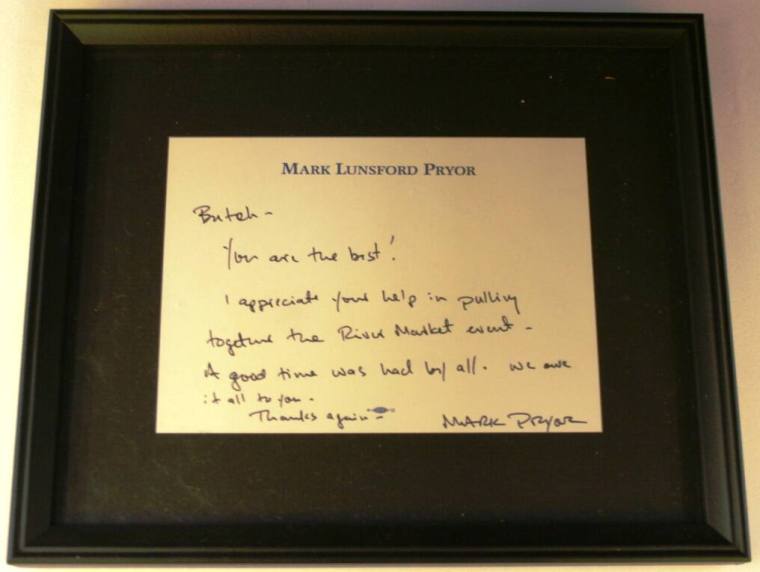 MARK LUNSFORD PRYOR
Butch -
You are the best!
I appreciate your help in pulling
together the River Market event -
A good time was had by all. We owe
it all to you -
Thanks again -
MARK PRYOR